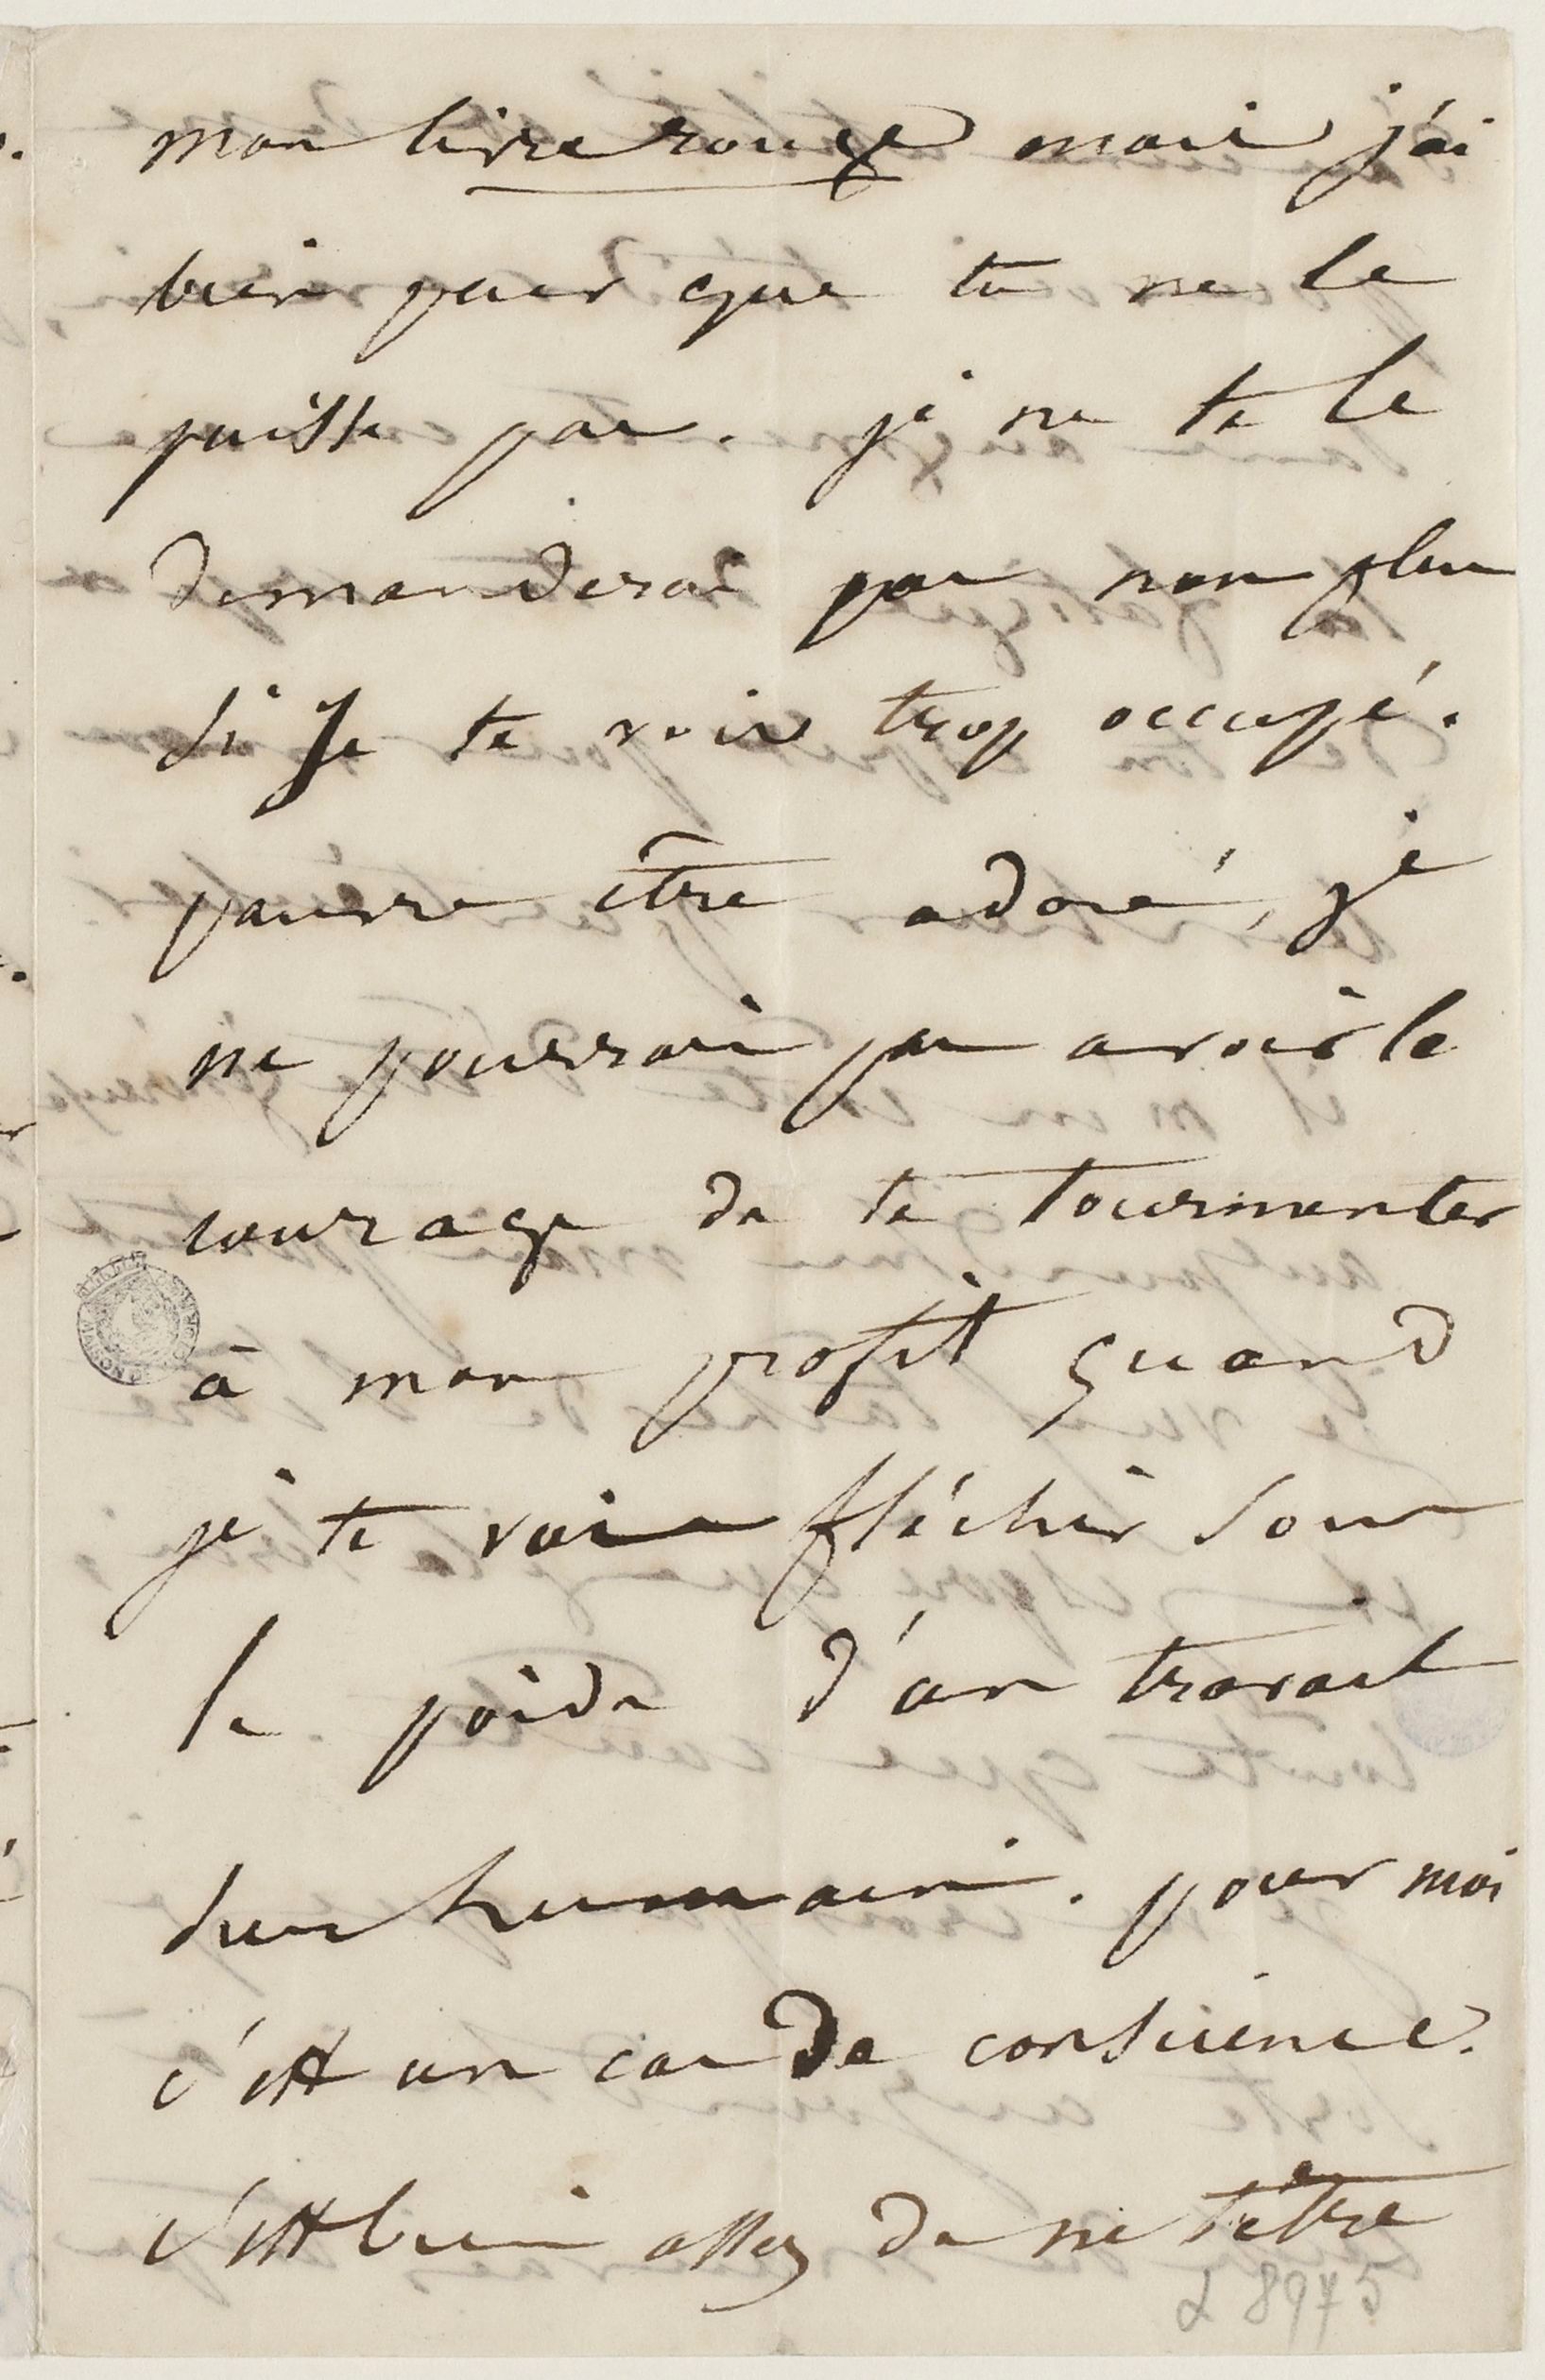 mon livre rouge mais j'ai
bien peur que tu ne le
puisse pas. je ne te le
demanderai pas non plus
si je te vois trop occupé.
pauvre être adoré, je
ne pourrais pas avoir le
courage de te tourmenter
à mon profit quand
je te vois fléchir sous
le poids d'un travail
surhumain. pour moi
c'est un cas de conscience.
c'est bien assez de ne t'être
L 8975